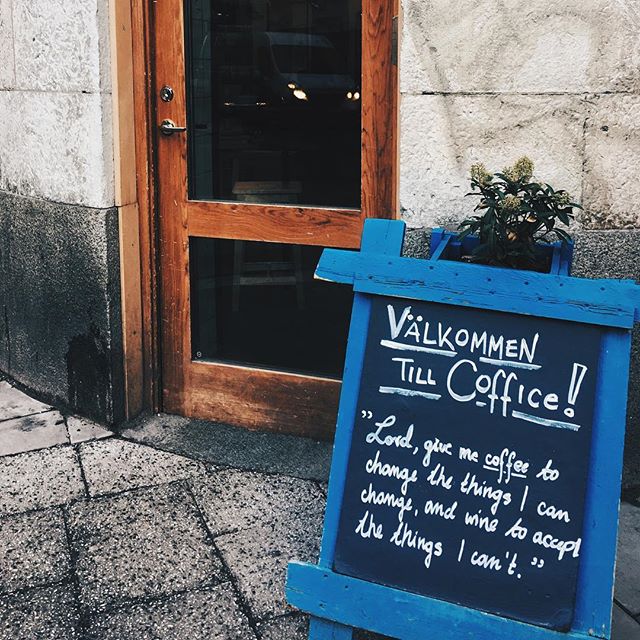 VÄLKOMMEN
TILL COFFICE!
"Lord, give me coffee to
change the things I can
change, and wine to accept
the things I can't."